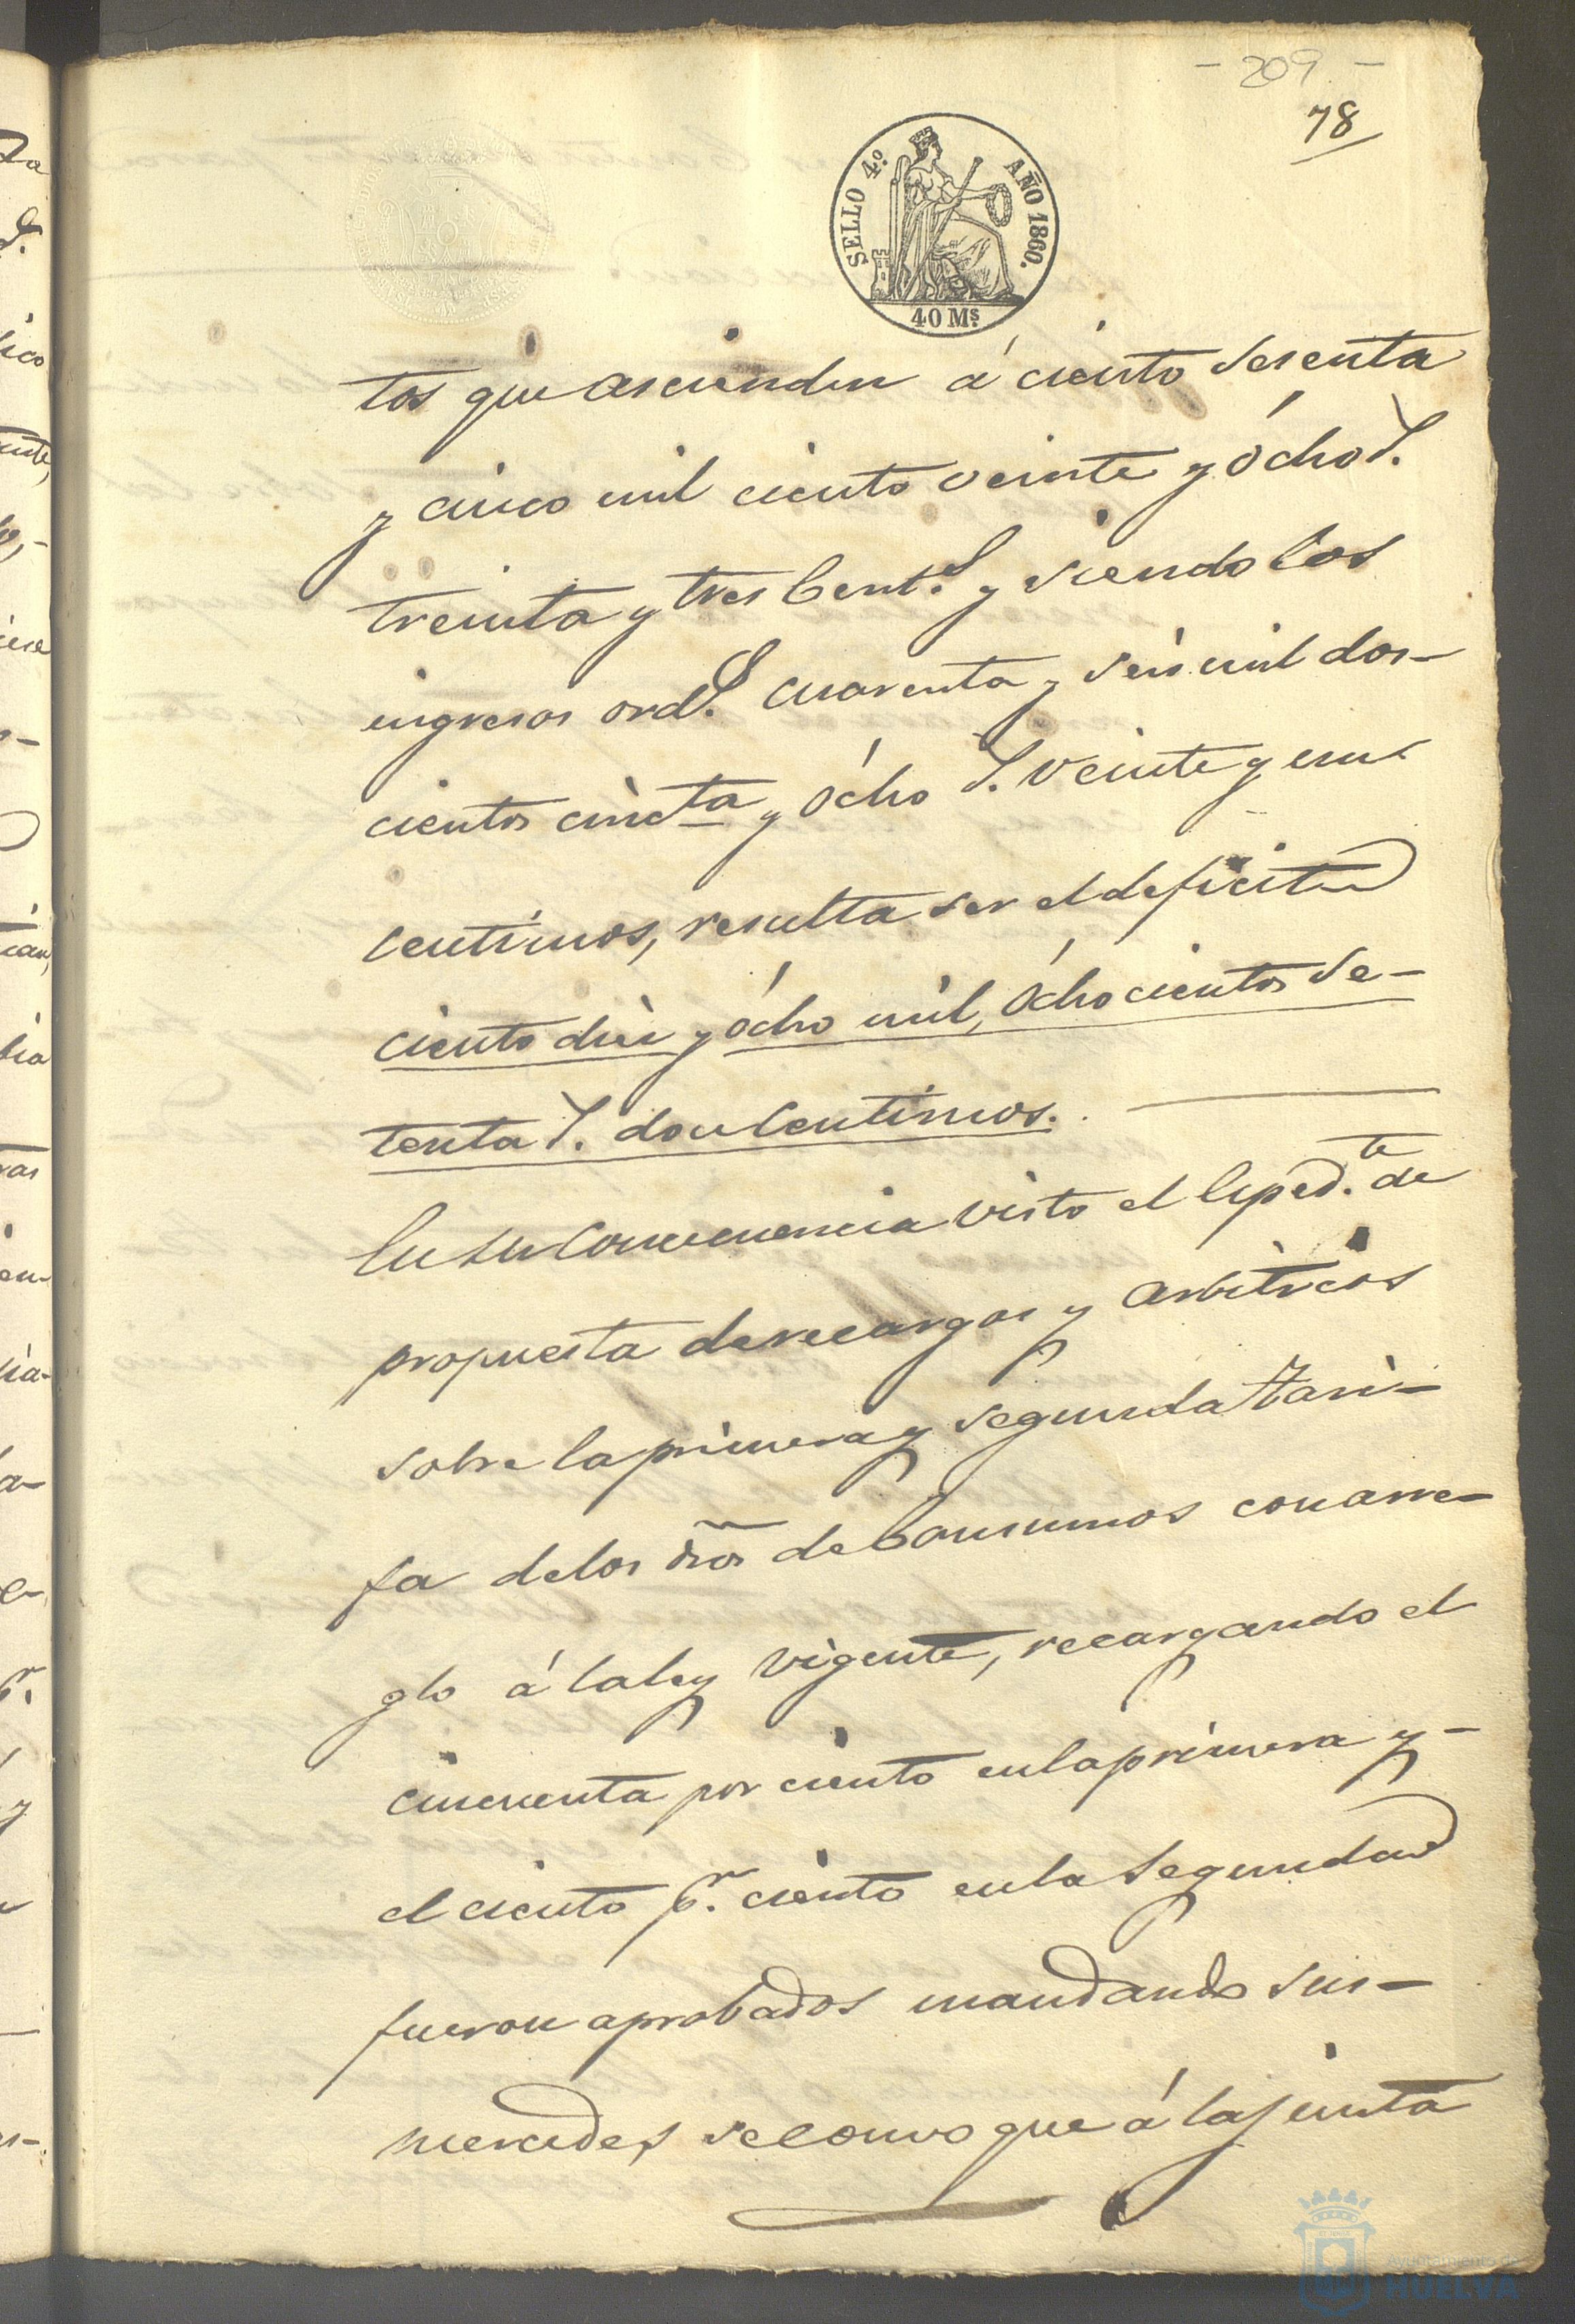 - 209 -
78
SELLO 4.º AÑO 1860.
40 Ms.
tos que ascienden á ciento sesenta
y cinco mil ciento veinte y ócho S.
treinta y tres Cent.s y siendo los
ingresos ord.s cuarenta y seis mil dos-
cientos cincta y ócho S. veinte y un
centimos, resulta ser el deficit
ciento diez y ócho mil, óchocientos se-
tenta S. doce Centimos.
En su Consecuencia visto el Esped.te de
propuesta de recargos y arbitrios
sobre la primera y segunda Tari-
fa de los dros de Consumos con arre-
glo á la ley vigente, recargando el
cincuenta por ciento en la primera y-
el ciento p.r ciento en la segunda
fueron aprobados mandando sus-
mercedes se convoque á la junta
Ayuntamiento de
HUELVA